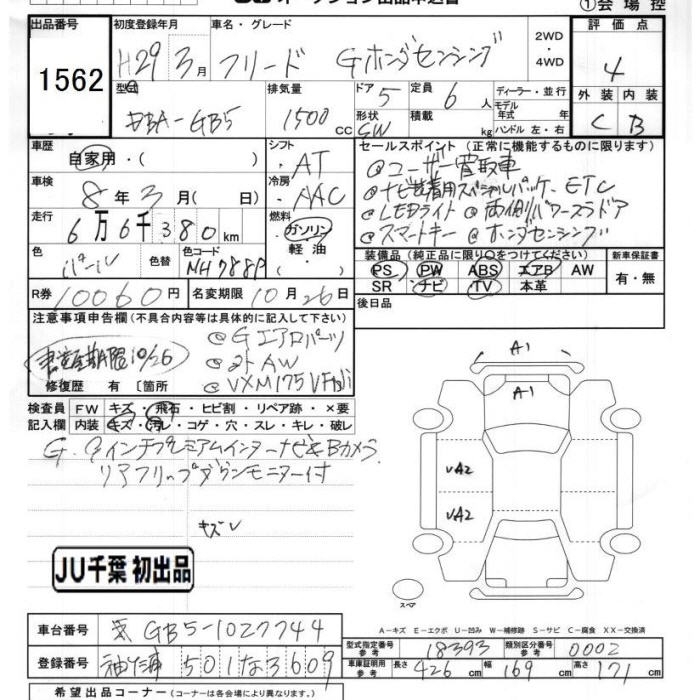 ①会場控
出品番号 初度登録年月 車名・グレード 2WD 評価点
1562 H29 3月 フリード Gホンダセンシング ・4WD 4
型式 排気量 ドア 5 定員 6人 ディーラー・並行 外装 内装
DBA-GB5 1500cc 形状 SW 積載 kg モデル年式 年式 ハンドル 左・右 C B
車歴 シフト セールスポイント (正常に機能するものに限ります)
自家用・( ) ・AT @ユーザー買取車
車検 冷房 @ナビ装着用スペシャルパッケー ETC
8年3月(日) ・AAC @LEDライト @両側パワースラドア
走行 燃料 @スマートキー @ホンダセンシング
6万6千380km ガソリン
軽油
色 色替 色コード 装備品 (純正品に限り○をつけてください) 新車保証書
パール NH788P PS PW ABS エアB AW 有・無
SR ナビ TV 本革
R券 10060円 名変期限 10月26日 後日品
注意事項申告欄 (不具合内容等は具体的に記入して下さい)
@Gエアロパーツ
10/26 @ホトAW
修復歴 有 〔箇所 @VXM175VFNi
検査員 FW キズ・飛石・ヒビ割・リペア跡・×要
記入欄 内装 キズ・汚レ・コゲ・穴・スレ・キレ・破レ
G インテプレミアムインターナビ&Bカメラ
リアフリップダウンモニター付
キズレ
JU千葉 初出品
A1
A1
UA2
UA2
スペア
A-キズ E-エクボ U-凹み W-補修跡 S-サビ C-腐食 XX-交換済
車台番号 GB5-1027744
型式指定番号 参考 18393 類別区分番号 参考 0002
登録番号 袖ヶ浦 501 な 3609
車庫証明用 参考 長さ 426cm 幅 169cm 高さ 171cm
希望出品コーナー (コーナーは各会場により異なります)